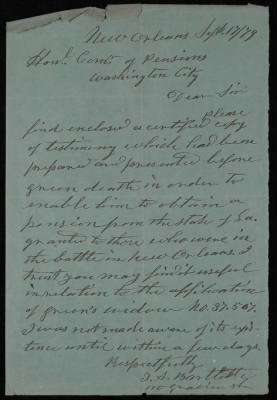 New Orleans Sept 17/79
Honl. Comr. of Pensions
Washington City
Dear Sir
Please
find enclosed a certified copy
of testimony which had been
prepared and presented before
green death in order to
enable him to obtain a
pension from the state of La.
granted to those who were in
the battle in New Orleans. I
trust you may find it useful
in relation to the application
of green's widow No. 37.507.
I was not made aware of its exis
tence until within a few days.
Respectfully
Bartlette